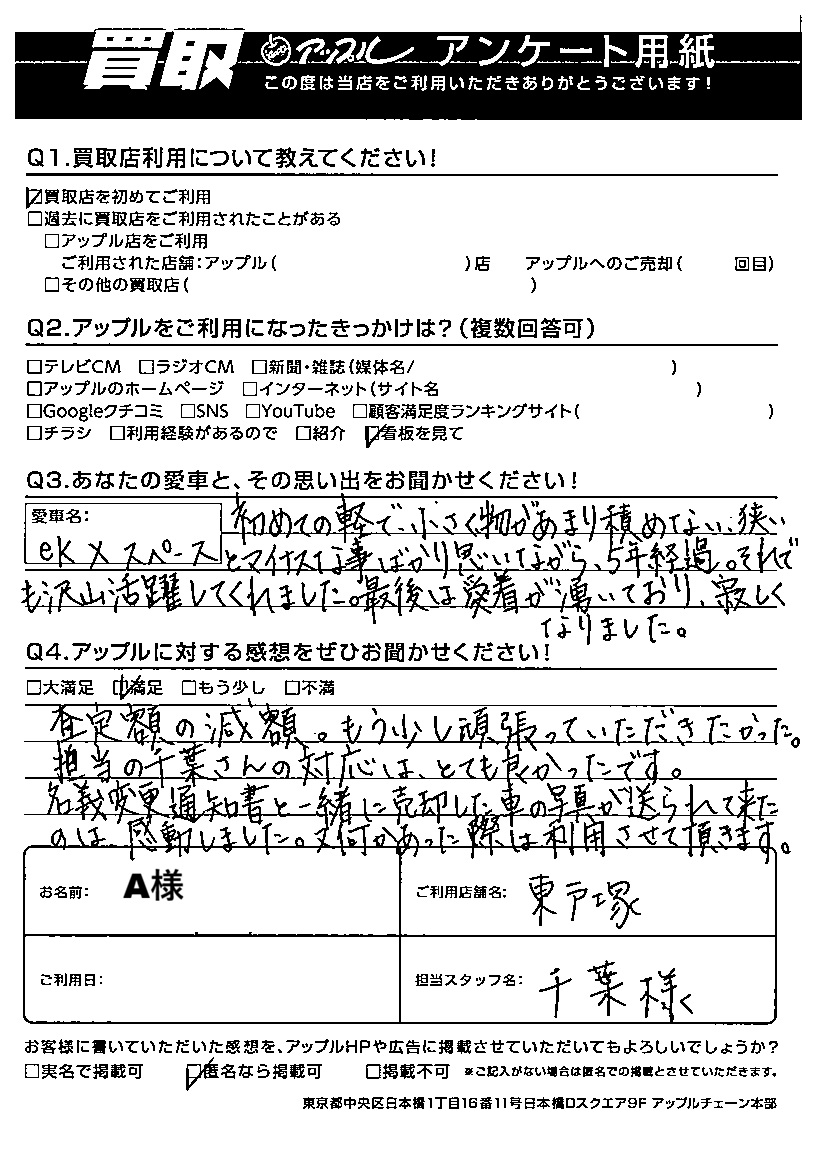 買取 アップル アンケート用紙
この度は当店をご利用いただきありがとうございます!
Q1.買取店利用について教えてください!
☑買取店を初めてご利用
□過去に買取店をご利用されたことがある
□アップル店をご利用
ご利用された店舗:アップル( )店 アップルへのご売却( 回目)
□その他の買取店( )
Q2.アップルをご利用になったきっかけは?(複数回答可)
□テレビCM □ラジオCM □新聞・雑誌(媒体名/ )
□アップルのホームページ □インターネット(サイト名 )
□Googleクチコミ □SNS □YouTube □顧客満足度ランキングサイト( )
□チラシ □利用経験があるので □紹介 ☑看板を見て
Q3.あなたの愛車と、その思い出をお聞かせください!
愛車名:
eKXスペース
初めての軽で、小さく物があまり積めない、狭い
とマイナスな事ばかり思いながら、5年経過。それで
も沢山活躍してくれました。最後は愛着が湧いており、寂しく
なりました。
Q4.アップルに対する感想をぜひお聞かせください!
□大満足 ☑満足 □もう少し □不満
査定額の減額。もう少し頑張っていただきたかった。
担当の千葉さんの対応は、とても良かったです。
名義変更通知書と一緒に売却した車の写真が送られて来た
のは、感動しました。又何かあった際は利用させて頂きます。
お名前: A様 ご利用店舗名: 東戸塚
ご利用日: 担当スタッフ名: 千葉様
お客様に書いていただいた感想を、アップルHPや広告に掲載させていただいてもよろしいでしょうか?
□実名で掲載可 ☑匿名なら掲載可 □掲載不可 ※ご記入がない場合は匿名での掲載とさせていただきます。
東京都中央区日本橋1丁目16番11号日本橋Dスクエア9F アップルチェーン本部